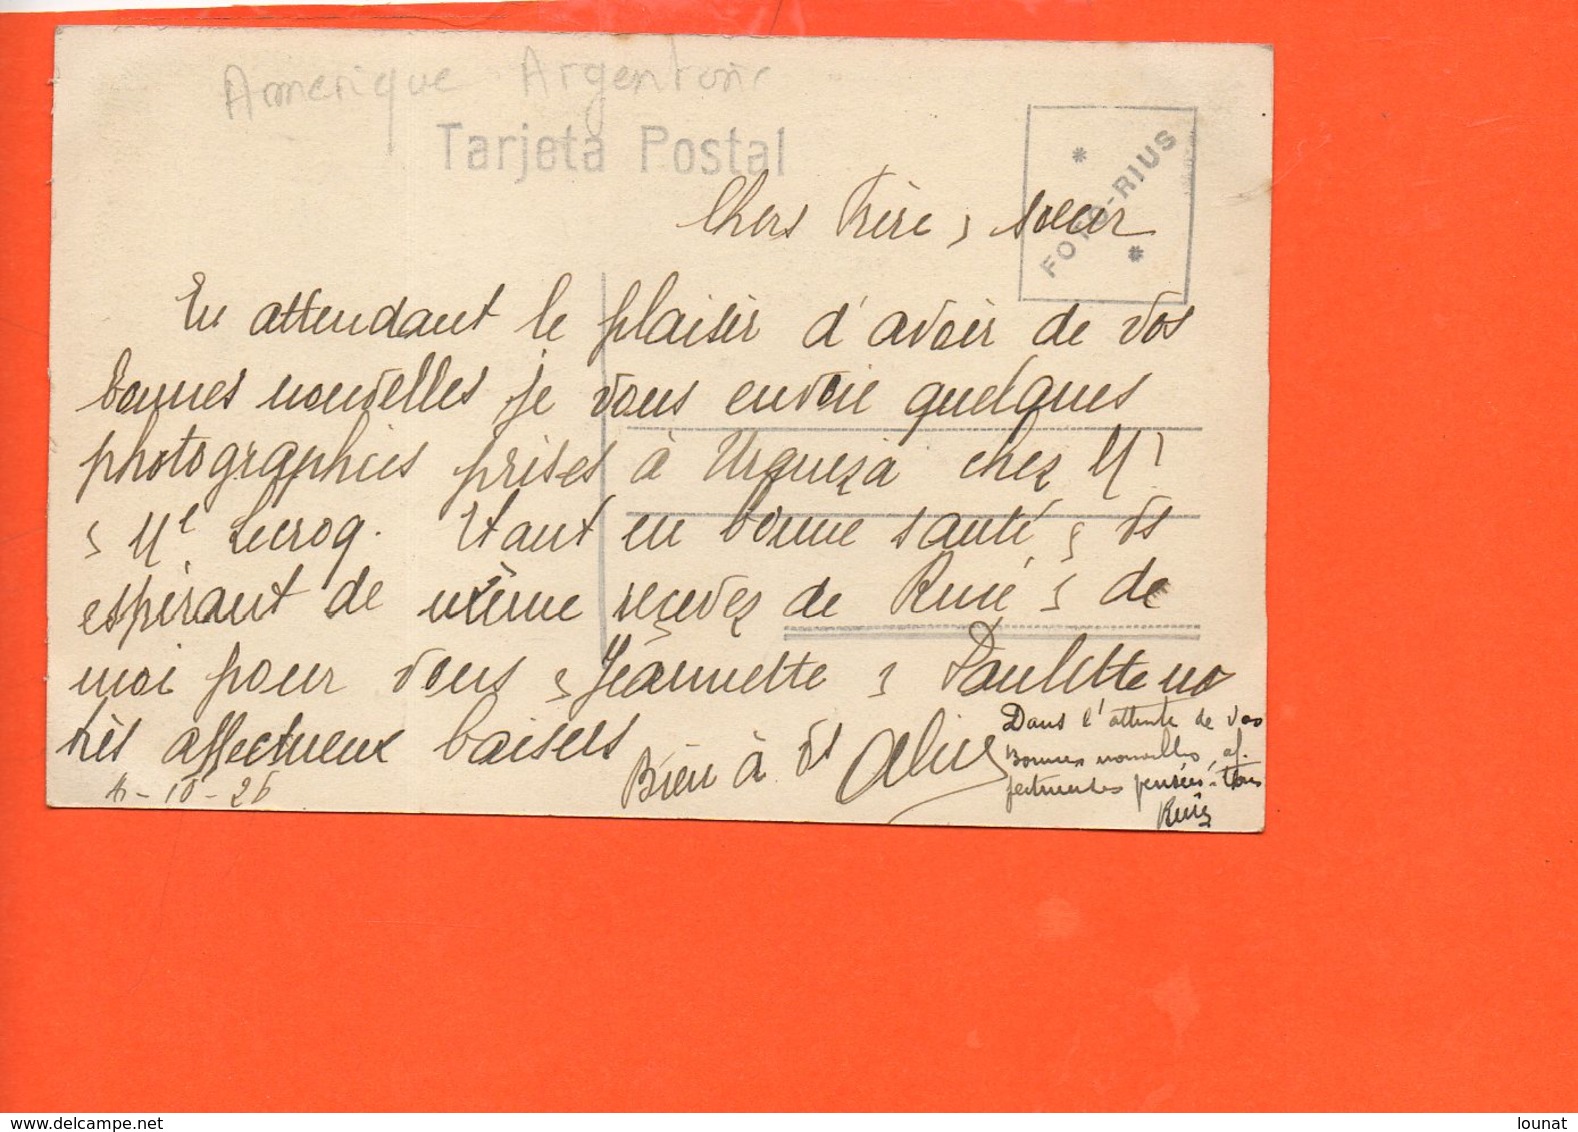 Amerique Argentine
Tarjeta Postal
FOTO-RIUS
Chers Frère & sœur
En attendant le plaisir d'avoir de vos
bonnes nouvelles je vous envoie quelques
photographies prises à Urquiza chez Mr
& Me Lecroq. Etant en bonne santé & vs
espérant de même recevez de René & de
moi pour vous & Jeannette & Paulette nos
très affectueux baisers
Bien à vs
Dans l'attente de vos
Bonnes nouvelles, af-
fectueuses pensées à tous
René
10-26
www.delcampe.net
lounat